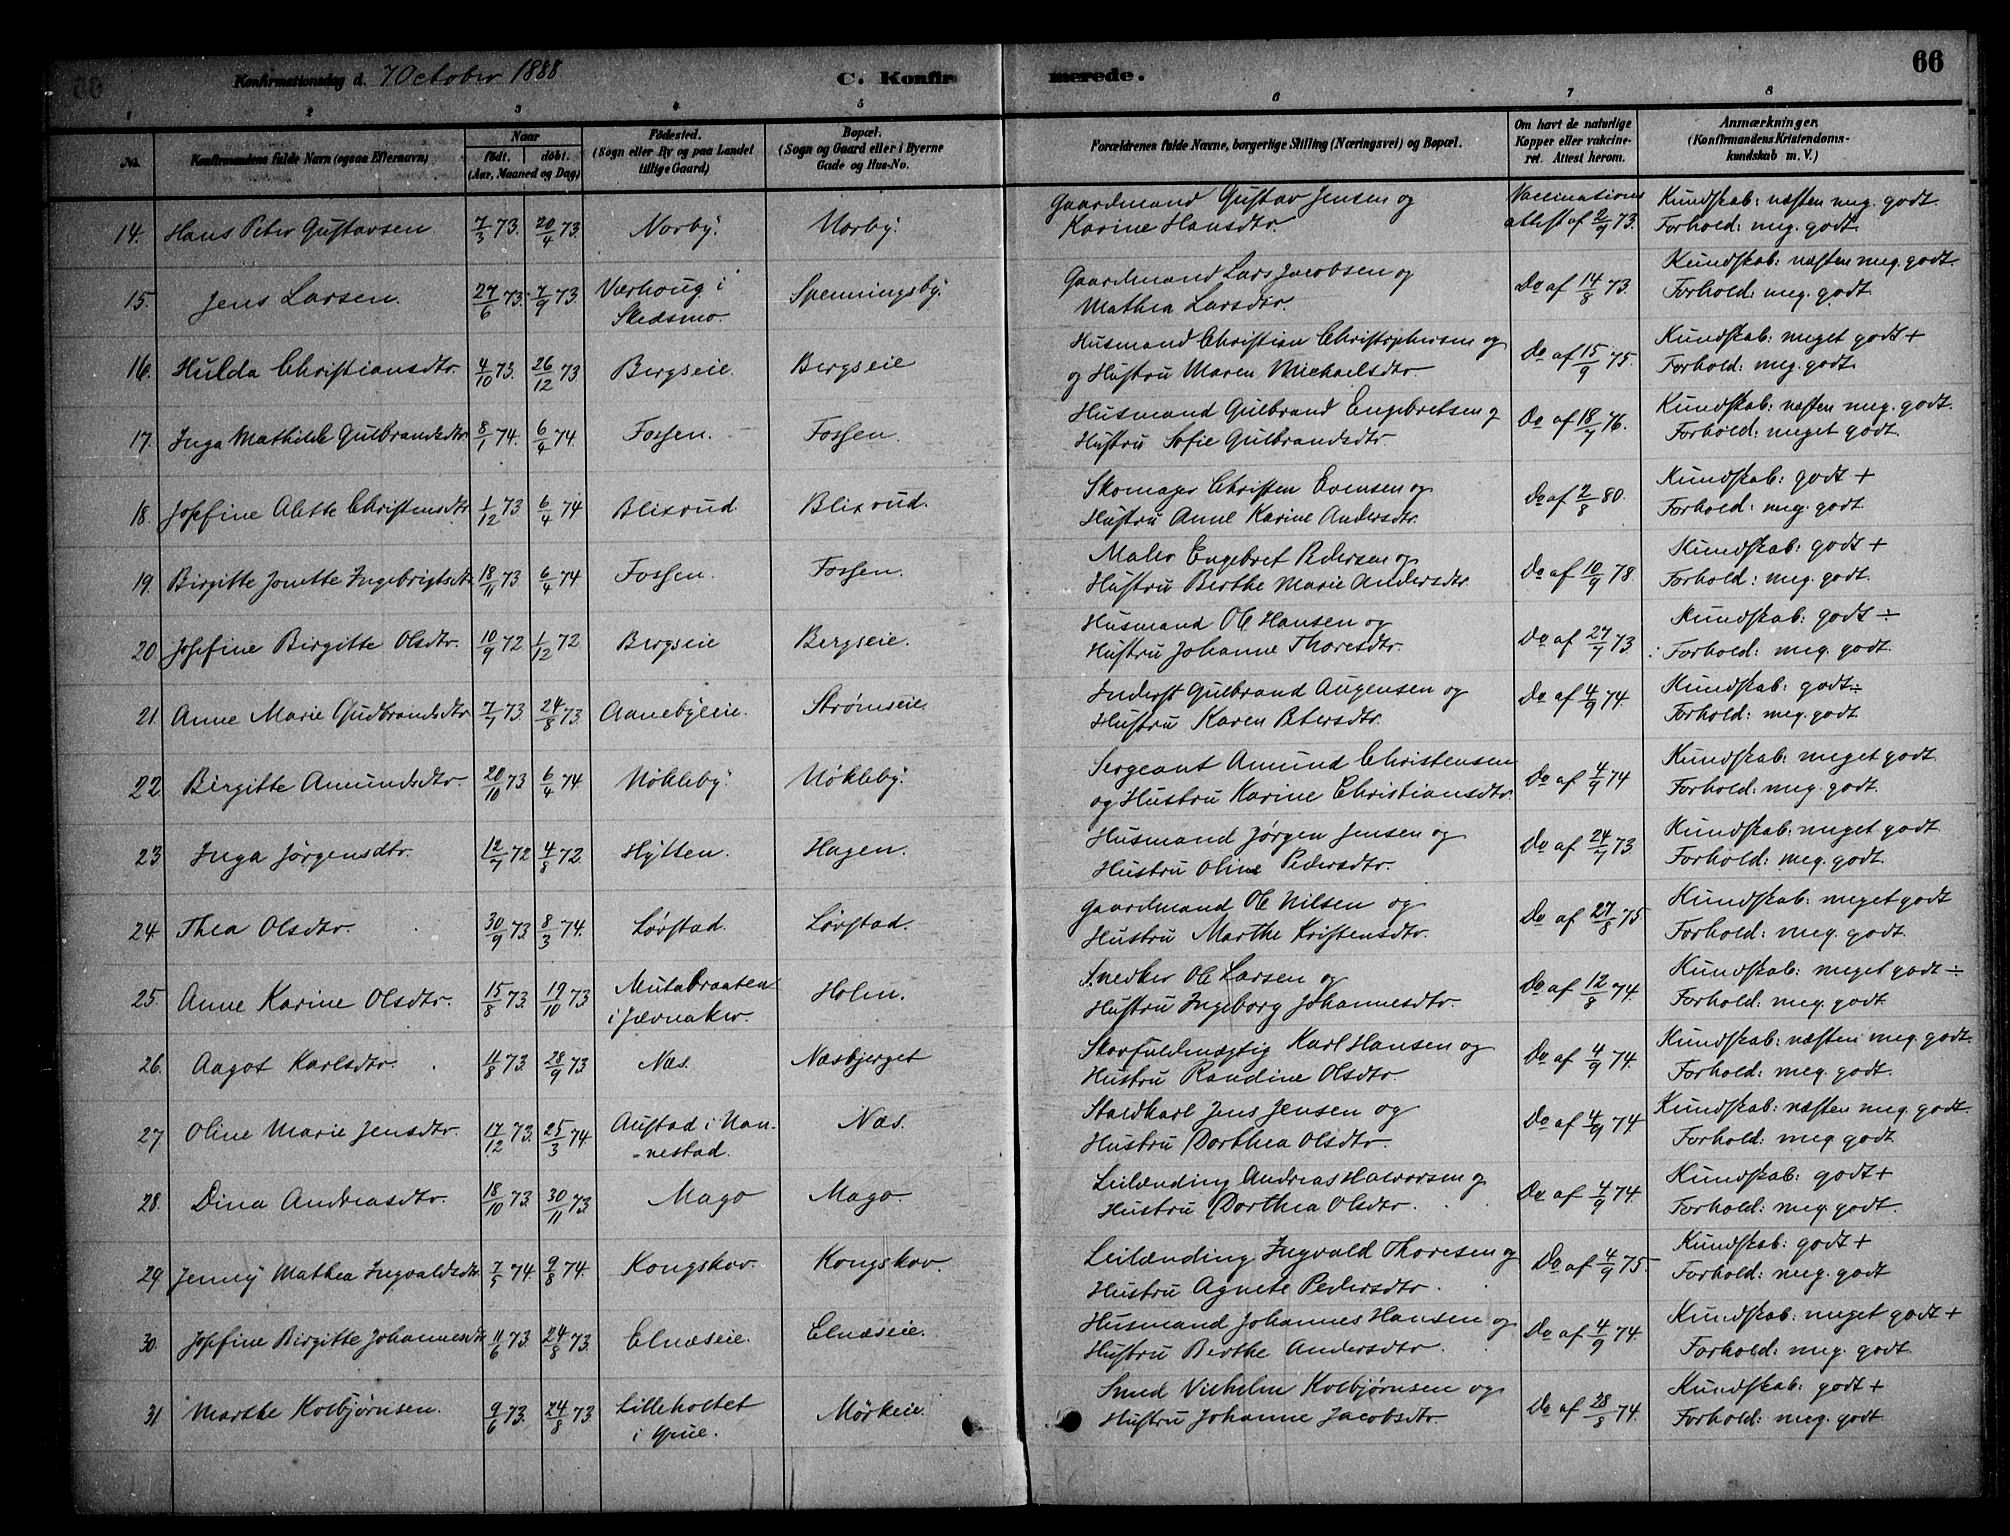 Konfirmationsdag d. 7 October 1888 C. Konfirmerede. 66
1 2 3 4 5 6 7 8
No. Konfirmandens fulde Navn (ogsaa Efternavn) Naar født. døbt. (Aar, Maaned og Dag) Fødested. (Sogn eller By og paa Landet tillige Gaard) Bopæl. (Sogn og Gaard eller i Byerne Gade og Hus-No. Forældrenes fulde Navne, borgerlige Stilling (Næringsvei) og Bopæl. Om havt de naturlige Kopper eller vakcineret. Attest herom. Anmærkninger. (Konfirmandens Kristendomskundskab m. V.)
14. Hans Peter Gustavsen 7/3 73. 20/4 73. Norby. Norby. Gaardmand Gustav Jensen og Vaccinations Kundskab: næsten meg. godt.
Karine Hansdtr. attest af 2/9 73. Forhold: meg. godt.
15. Jens Larsen. 27/6 73. 7/9 73 Værhoug i Spenningsby. Gaardmand Lars Jacobsen og Do af 14/8 73. Kundskab: næsten meg. godt.
Skedsmo. Mathea Larsdtr. Forhold: meg. godt.
16. Hulda Christiansdtr. 4/10 73. 26/12 73 Bergseie. Bergseie Husmand Christian Christophersen og Do af 15/9 75. Kundskab: meget godt +
og Hustru Maren Michaelsdtr. Forhold: meg. godt.
17. Inga Mathilde Gulbrandsdtr. 8/1 74. 6/4 74 Fossen. Fossen. Husmand Gulbrand Engebretsen og Do af 18/7 76. Kundskab: næsten meg. godt.
Hustru Sofie Gulbrandsdtr. Forhold: meget godt.
18. Josefine Alette Christensdtr. 1/12 73 6/4 74 Blixrud. Blixrud. Skomager Christen Evensen og Do af 2/8 80. Kundskab: godt +
Hustru Anne Karine Andersdtr. Forhold: meg. godt
19. Birgitte Jonette Ingebrigtsdtr. 18/11 73 6/4 74 Fossen. Fossen. Maler Engebret Pedersen og Do af 10/9 78. Kundskab: godt +
Hustru Berthe Marie Andersdtr. Forhold: meg. godt.
20. Josefine Birgitte Olsdtr. 10/9 72 1/12 72 Bergseie Bergseie. Husmand Ole Hansen og Do af 27/7 73 Kundskab: godt ÷
Hustru Johanne Thoresdtr. Forhold: meg. godt.
21. Anne Marie Gudbrandsdtr. 7/7 73. 24/8 73. Aanebyeie. Strømseie Inderst Gulbrand Augensen og Do af 4/9 74. Kundskab: godt ÷
Hustru Karen Petersdtr. Forhold: meg. godt.
22 Birgitte Amundsdtr. 20/10 73 6/4 74. Nökleby. Nökleby. Sergeant Amund Christensen Do af 4/9 74 Kundskab: meget godt.
og Hustru Karine Christiansdtr. Forhold: meg. godt.
23. Inga Jørgensdtr. 12/7 72 4/8 72. Hytten. Hagen. Husmand Jørgen Jensen og Do af 24/7 73. Kundskab: meget godt
Hustru Oline Pedersdtr. Forhold: meg. godt.
24. Thea Olsdtr. 30/9 73. 8/3 74. Lørstad. Lørstad. Gaardmand Ole Nilsen og Do af 27/8 75 Kundskab: meget godt
Hustru Marthe Kristensdtr. Forhold: meg. godt.
25. Anne Karine Olsdtr. 15/8 73. 19/10 73 Mutabraaten Holm. Snedker Ole Larsen og Do af 12/8 74. Kundskab: meget godt ÷
i Jævnaker. Hustru Ingeborg Johannesdtr. Forhold: meg. godt
26. Aagot Karlsdtr. 11/8 73. 28/9 73 Næs. Næsbjerget Skovfuldmægtig Karl Hansen og Do af 4/9 74. Kundskab: næsten meg. godt.
Hustru Randine Olsdtr. Forhold: meg. godt.
27. Oline Marie Jensdtr. 17/12 73. 25/3 74 Austad i Nan- Næs. Staldkarl Jens Jensen og Do af 4/9 74 Kundskab: næsten meg. godt.
-nestad. Hustru Dorthea Olsdtr. Forhold: meg. godt.
28. Dina Andreasdtr. 18/10 73. 30/11 73. Mago Mago. Leilænding Andreas Halvorsen og Do af 4/9 74. Kundskab: godt +
Hustru Dorthea Olsdtr. Forhold: meg. godt.
29. Jenny Mathea Ingvaldsdtr. 7/5 74. 9/8 74. Kongskov. Kongskov. Leilænding Ingvald Thoresen og Do af 4/9 75. Kundskab: godt +
Hustru Agnete Pedersdtr. Forhold: meg. godt
30. Josefine Birgitte Johannesdtr. 11/6 73. 24/8 73. Elnæseie. Elnæseie. Husmand Johannes Hansen og Do af 4/9 74. Kundskab: meget godt +
Hustru Berthe Andersdtr. Forhold: meg. godt.
31 Marthe Kolbjørnsen. 9/6 73. 24/8 73 Lilleholtet Mørkeie. Smed Vilhelm Kolbjørnsen og Do af 28/8 74. Kundskab: godt +
i Grue. Hustru Johanne Jacobsdtr. Forhold: meg. godt